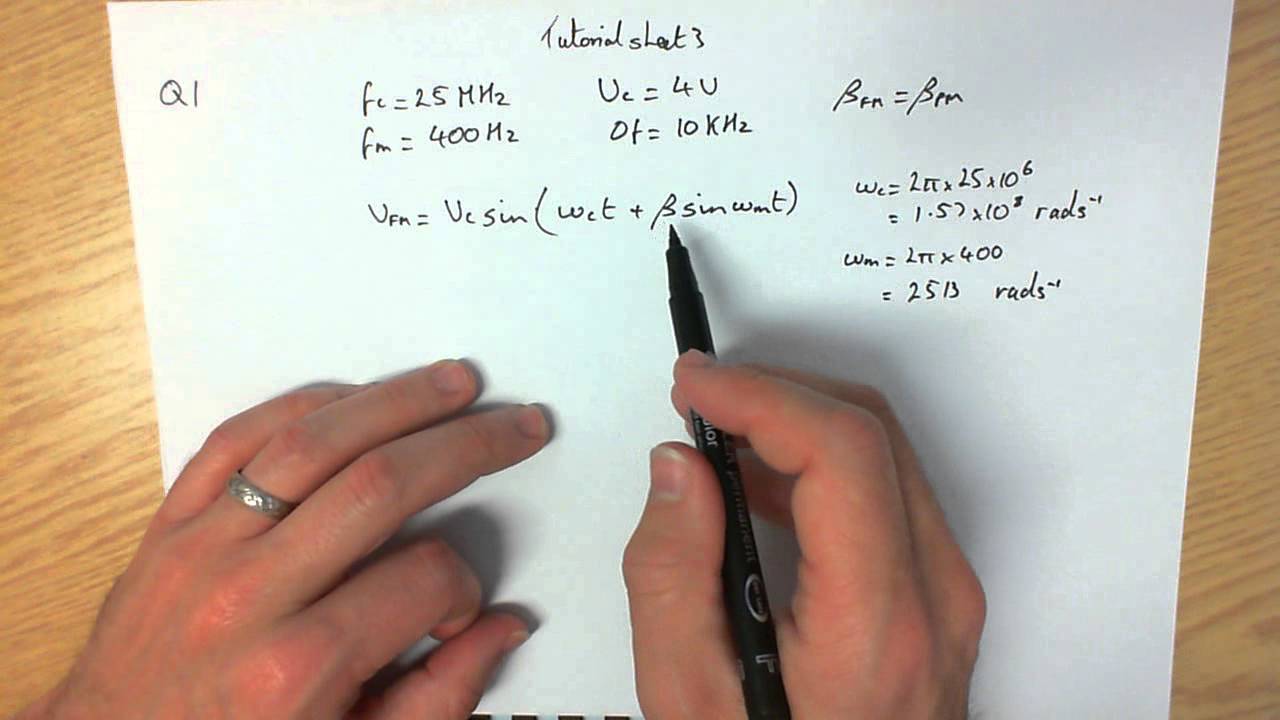 Tutorial sheet 3
Q1
fc = 25 MHz
Vc = 4V
βFM = βPM
fm = 400 Hz
Df = 10 KHz
VFM = Vc sin(ωct + β sin ωmt)
ωc = 2π x 25 x 10⁶
= 1.57 x 10⁸ rads⁻¹
ωm = 2π x 400
= 2513 rads⁻¹
permanent